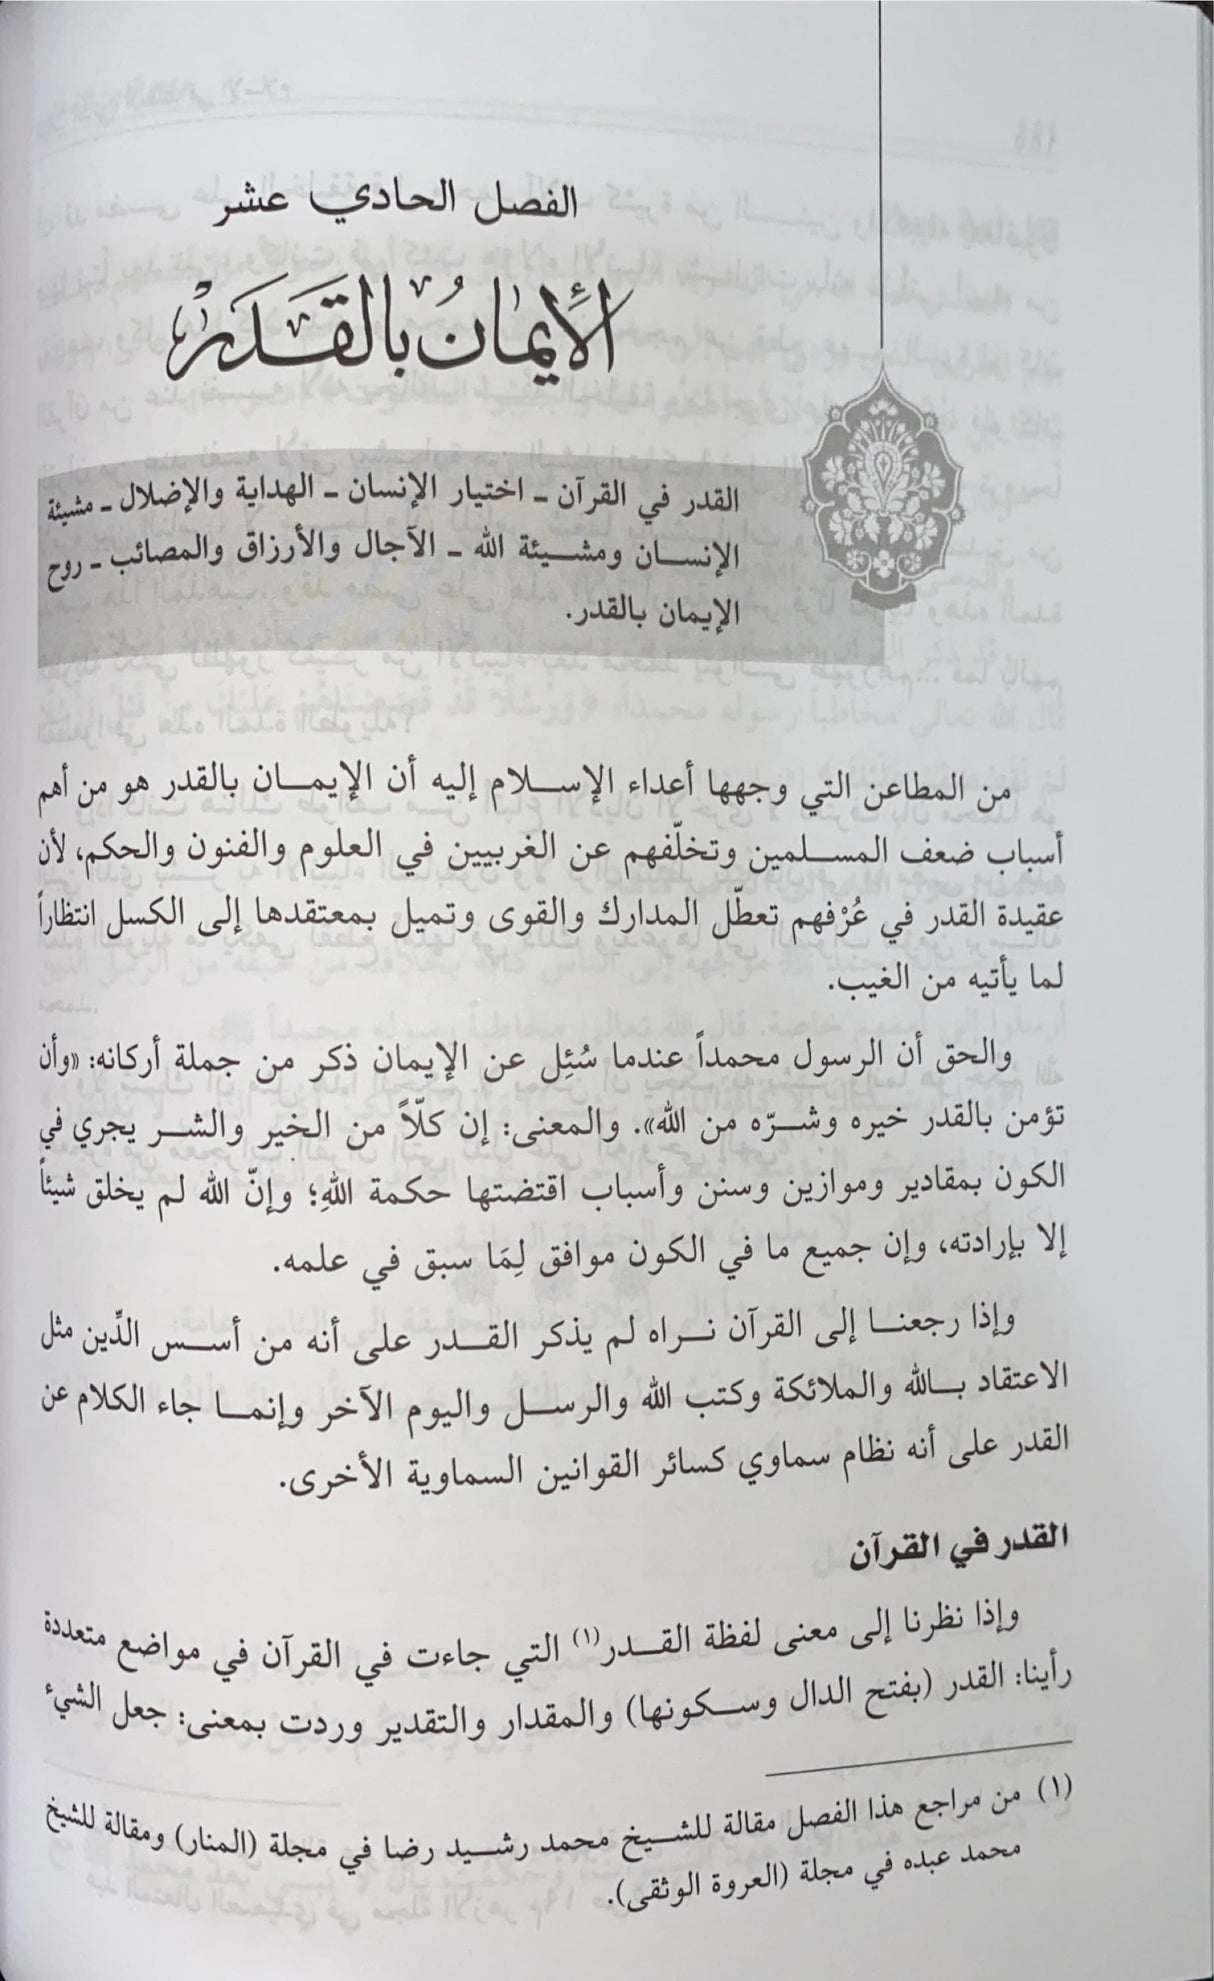 الفصل الحادي عشر
الإِيمَانُ بالقَدَرْ
القدر في القرآن ـ اختيار الإنسان ـ الهداية والإضلال ـ مشيئة
الإنسان ومشيئة الله ـ الآجال والأرزاق والمصائب ـ روح
الإيمان بالقدر.
من المطاعن التي وجهها أعداء الإسلام إليه أن الإيمان بالقدر هو من أهم
أسباب ضعف المسلمين وتخلّفهم عن الغربيين في العلوم والفنون والحكم، لأن
عقيدة القدر في عُرْفهم تعطّل المدارك والقوى وتميل بمعتقدها إلى الكسل انتظاراً
لما يأتيه من الغيب.
والحق أن الرسول محمداً عندما سُئِل عن الإيمان ذكر من جملة أركانه: «وأن
تؤمن بالقدر خيره وشرّه من الله». والمعنى: إن كلّاً من الخير والشر يجري في
الكون بمقادير وموازين وسنن وأسباب اقتضتها حكمة اللهِ؛ وإنّ الله لم يخلق شيئاً
إلا بإرادته، وإن جميع ما في الكون موافق لِمَا سبق في علمه.
وإذا رجعنا إلى القرآن نراه لم يذكر القدر على أنه من أسس الدِّين مثل
الاعتقاد بالله والملائكة وكتب الله والرسل واليوم الآخر وإنما جاء الكلام عن
القدر على أنه نظام سماوي كسائر القوانين السماوية الأخرى.
القدر في القرآن
وإذا نظرنا إلى معنى لفظة القدر(١) التي جاءت في القرآن في مواضع متعددة
رأينا: القدر (بفتح الدال وسكونها) والمقدار والتقدير وردت بمعنى: جعل الشيء
(١) من مراجع هذا الفصل مقالة للشيخ محمد رشيد رضا في مجلة (المنار) ومقالة للشيخ
محمد عبده في مجلة (العروة الوثقى).